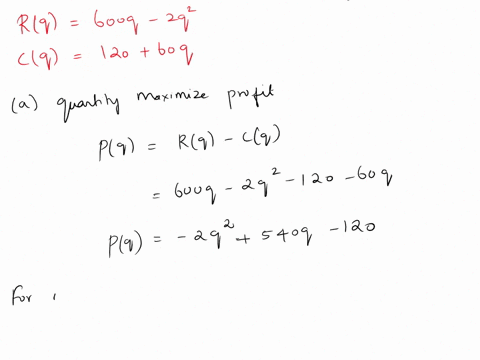 R(q) = 600q - 2q²
C(q) = 120 + 60q
(a) quantity maximize profit
P(q) = R(q) - C(q)
= 600q - 2q² - 120 - 60q
P(q) = - 2q² + 540q - 120
For